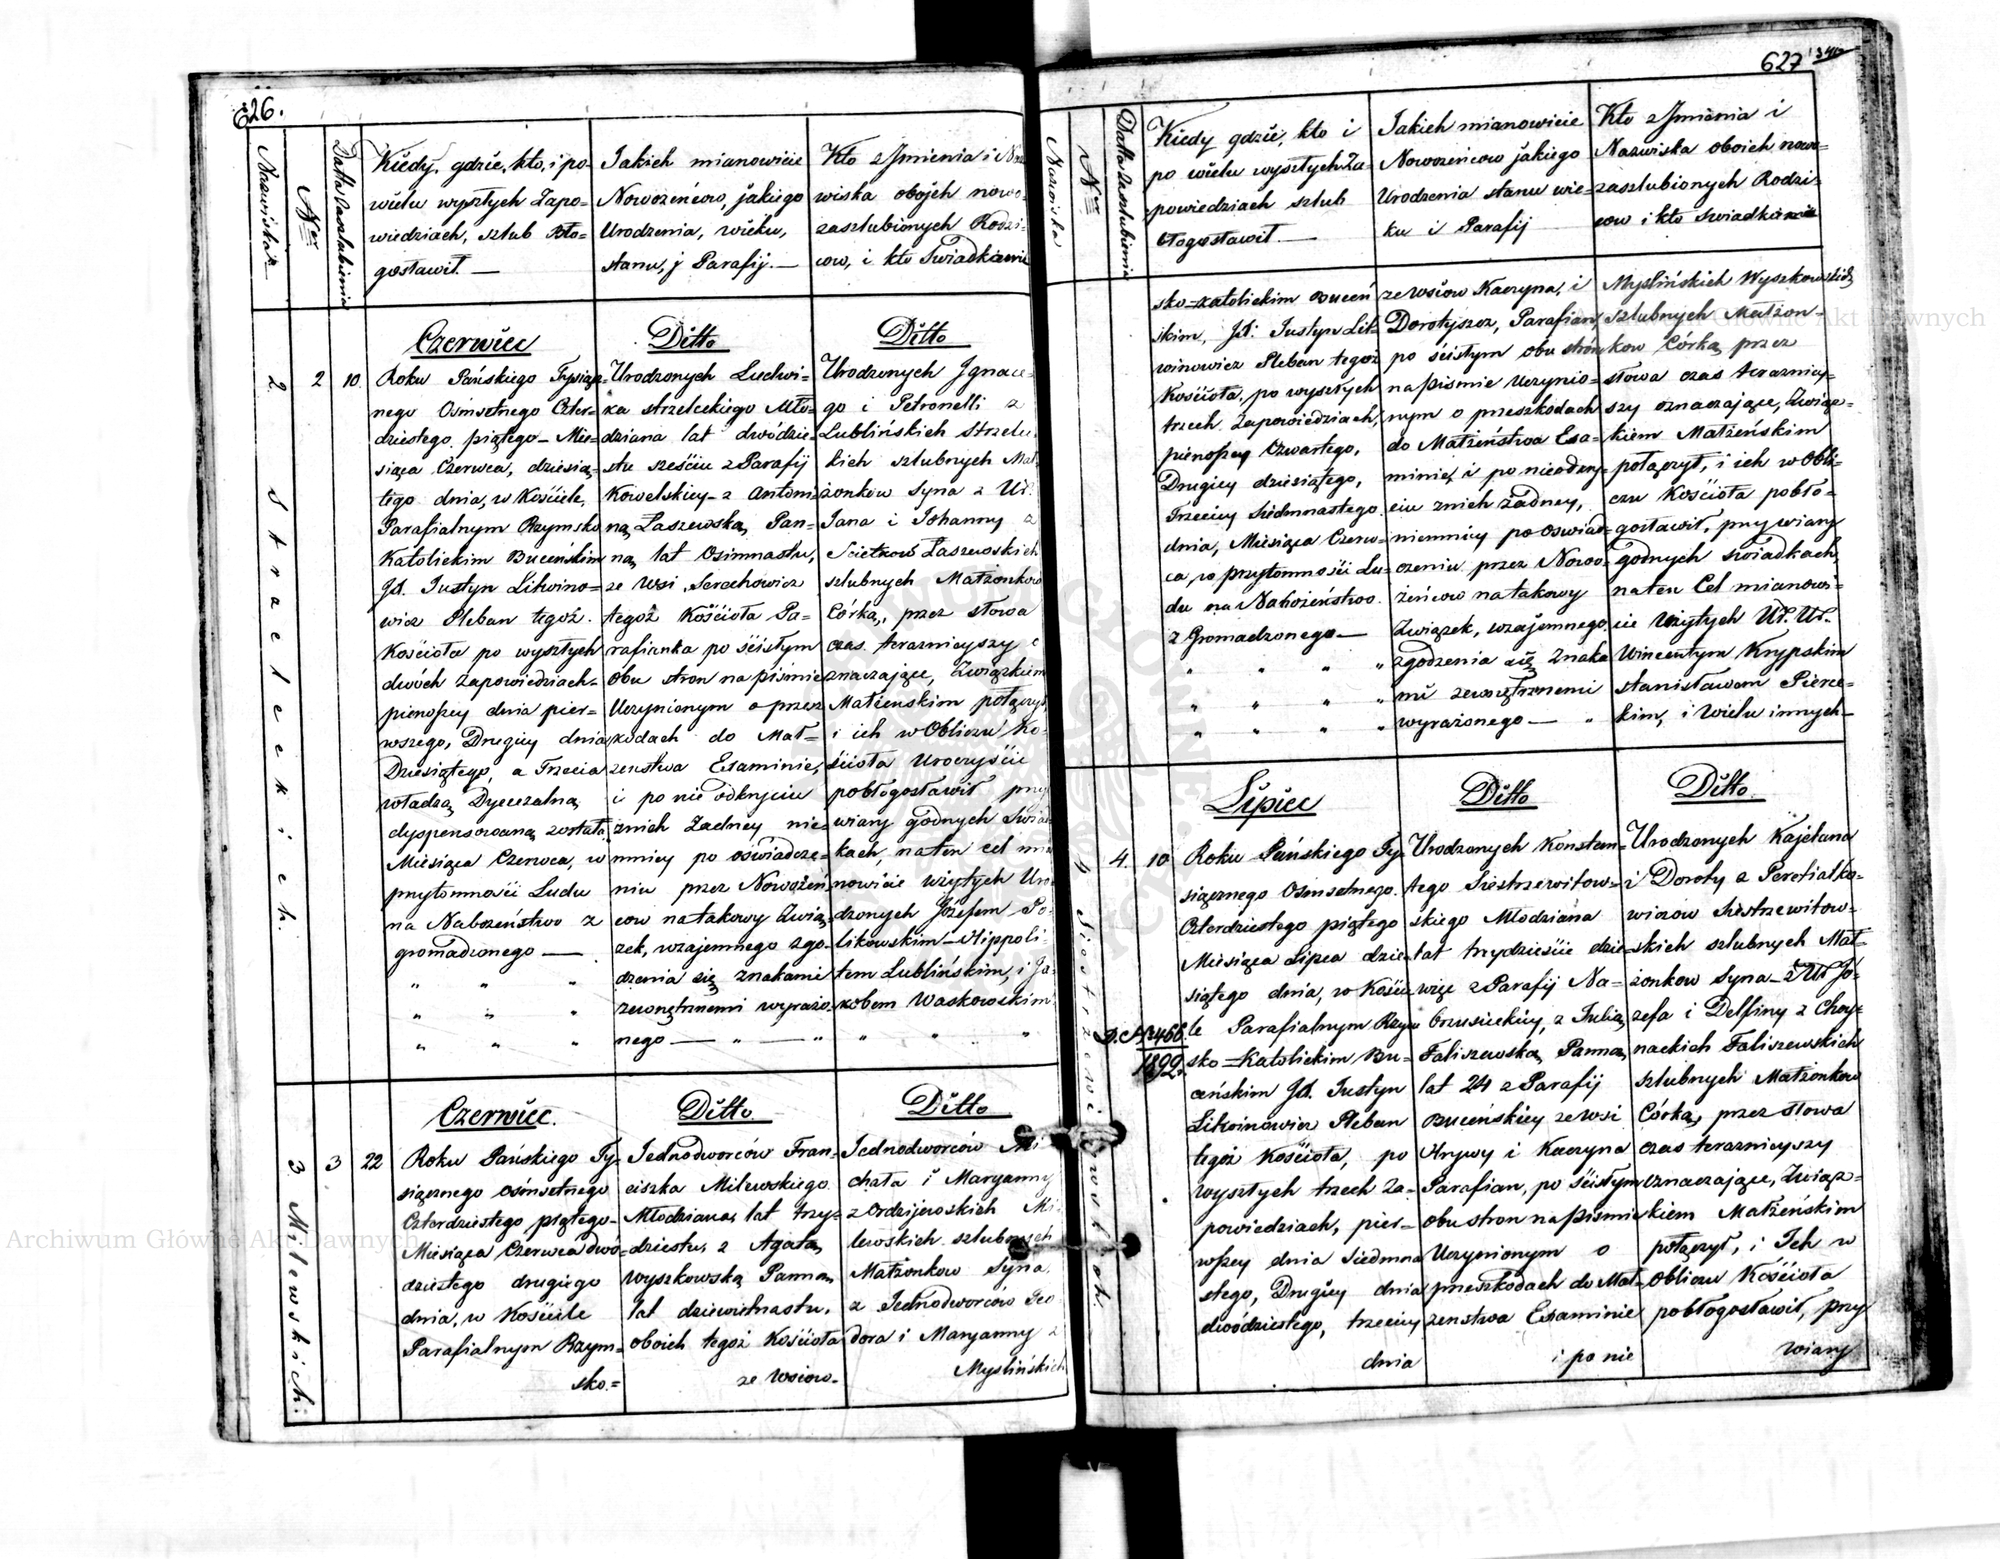 626.
Nazwiska
Ner
Datta Zaszlubienia
Kiedy, gdzie, kto, i po
wielu wyszłych Zapo=
wiedziach, szlub bło=
gosławił. —
Jakich mianowicie
Nowożeńcow, jakiego
Urodzenia, wieku,
stanu, j Parafij. —
Kto z Jmienia i Naz
wiska obojch nowo=
zaszlubionych Rodzi=
cow, i kto Swiadkami
2 Strzeleckich.
2
10.
Czerwiec
Roku Pańskiego Tysiącz=
nego Osmsetnego Czter=
dziestego piątego – Mie=
siąca Czerwca, dziesią=
tego dnia, w Kościele
Parafialnym Rzymsko
Katolickim Buceńskim
Jd. Justyn Litwino=
wicz Pleban tegoż
Kościoła po wyszłych
dwóch Zapowiedziach
pierwszey dnia pier=
wszego, Drugiey dnia
Dziesiątego, a Trzecia
władzą Dyecezalną
dyspensowaną została
Miesiąca Czerwca, w
przytomności Ludu
na Nabożeństwo z
gromadzonego —
" " "
" " "
" " "
Ditto
Urodzonych Ludwi=
ka Strzeleckiego Mło=
dziana lat dwódzie=
stu sześciu z Parafij
Kowelskiey – z Antoni=
ną Łaszewską, Pan=
ną, lat Osimnastu,
ze Wsi Serechowicz
tegoż Kościoła Pa=
rafianka po ścisłym
obu stron na piśmie
Uczynionym o przez
kodach do Mał=
żenstwa Examinie,
i po nie odkryciu
znich Żadney nie=
mniey po oświadcze=
niu przez Nowożeń
cow natakowy Zwią=
zek, wzajemnego zgo=
dzenia się znakami
zewnętrznemi wyrażo=
nego — " — "
Ditto
Urodzonych Jgnace=
go i Petronelli z
Lublińskich Strzelec
kich szlubnych Mał=
żonków Syna z Ur.
Jana i Johanny z
Scietków Łaszewskich
szlubnych Małżonków
Córką, przez słowa
czas teraznieyszy
znaczające, Związkiem
Małżenskim połączył
i ich w Obliczu Ko=
ścioła Uroczyście
pobłogosławił przy
wiary godnych Świad
kach, na ten cel mia
nowicie Użytych Uro
dzonych Józefem Po=
likowskim – Hippoli=
tem Lublińskim, i Ja=
kobem Waskowskim
" " "
3 Milewskich.
3
22
Czerwiec.
Roku Pańskiego Ty=
siącznego Osmsetnego
Czterdziestego piątego
Miesiąca Czerwca dwó=
dziestego drugiego
dnia, w Kościele
Parafialnym Rzym=
sko=
Ditto.
Jednodworców Fran=
ciszka Milewskiego
Młodziana, lat trzy=
dziestu, z Agatą
Wyszkowską Panną,
lat dziewietnastu,
oboich tegoż Kościoła
ze Wsiow=
Ditto
Jednodworców Mi
chała i Maryanny
z Ordzijewskich Mi
lewskich szlubnych
Małżonkow Syna
z Jednodworców Teo
dora i Maryanny z
Myslińskich
627
Nazwiska
Ner
Datta Zaszlubienia
Kiedy gdzie, kto i
po wielu wyszłych Za=
powiedziach szlub
błogosławił —
Jakich mianowicie
Nowożeńcow jakiego
Urodzenia stanu wie=
ku i Parafij
Kto z Jmienia i
Nazwiska oboich nowo=
zaszlubionych Rodzi=
cow i kto swiadkami
sko=katolickim Buceń
skim, Jd. Justyn Lit=
winowicz Pleban tegoż
Kościoła, po wyszłych
trzech Zapowiedziach,
pierwszey Czwartego,
Drugiey dziesiątego,
Trzeciey Siedmnastego
dnia, Miesiąca Czerw=
ca, w przytomności Lu=
du na Nabożeństwo
z Gromadzonego —
" " " "
" " " "
" " " "
ze Wsiow Kaczyna, i
Dorotyszcz, Parafian
po ścisłym obu stron
na piśmie Uczynio=
nym o przeszkodach
do Małżeństwa Exa=
minie, i po nieodkry=
ciu znich Żadney,
niemniey po oswiad=
czeniu przez Nowo=
żeńcow natakowy
Związek, wzajemnego
zgodzenia się Znaka
mi zewnętrznemi
wyrażonego — "
Myslińskich Wyszkowskich
szlubnych Małżon=
kow Córką przez
słowa czas terazniey=
szy oznaczające, Związ=
kiem Małżeńskim
połączył, i ich w Obli=
czu Kościoła pobło=
gosławił, przy wiary
godnych swiadkach,
na ten Cel mianowi=
cie Użytych Ur. Ur.
Wincentym Krypskim
Stanisławem Pierec=
kim, i Wielu innych —
4 Siestrzewitowskich.
4.
10
D. A. № 466
1892
Lipiec
Roku Pańskiego Ty=
siącznego Osmsetnego
Czterdziestego piątego
Miesiąca Lipca dzie=
siątego dnia, w Kości=
le Parafialnym Rzym
sko=Katolickim Bu=
ceńskim Jd. Justyn
Litwinowicz Pleban
tegoż Kościoła, po
wyszłych trzech Za=
powiedziach, pier=
wszey dnia Siedmna
stego, Drugiey dnia
dwódziestego, trzeciey
dnia
Ditto
Urodzonych Konstan=
tego Siestrzewitow=
skiego Młodziana
lat trzydzieście dzie=
więc z Parafij Na=
brusieckiey, z Julią
Faliszewską Panną,
lat 24 z Parafij
Buceńskiey ze Wsi
Hrywy i Kaczyna
Parafian, po ścisłym
obu stron na piśmie
Uczynionym o
przeszkodach do Mał=
żenstwa Examinie
i po nie
Ditto.
Urodzonych Kajetana
i Doroty z Peretiatko=
wiczów Siestrzewitow=
skich szlubnych Mał=
żonkow Syna – z Ur Jó=
zefa i Delfiny z Choy=
nackich Faliszewskich
szlubnych Małżonkow
Córką, przez słowa
czas teraznieyszy
oznaczające, Związ=
kiem Małżeńskim
połączył, i Ich w
Obliczu Kościoła
pobłogosławił, przy
wiary
Archiwum Główne Akt Dawnych
Archiwum Główne Akt Dawnych